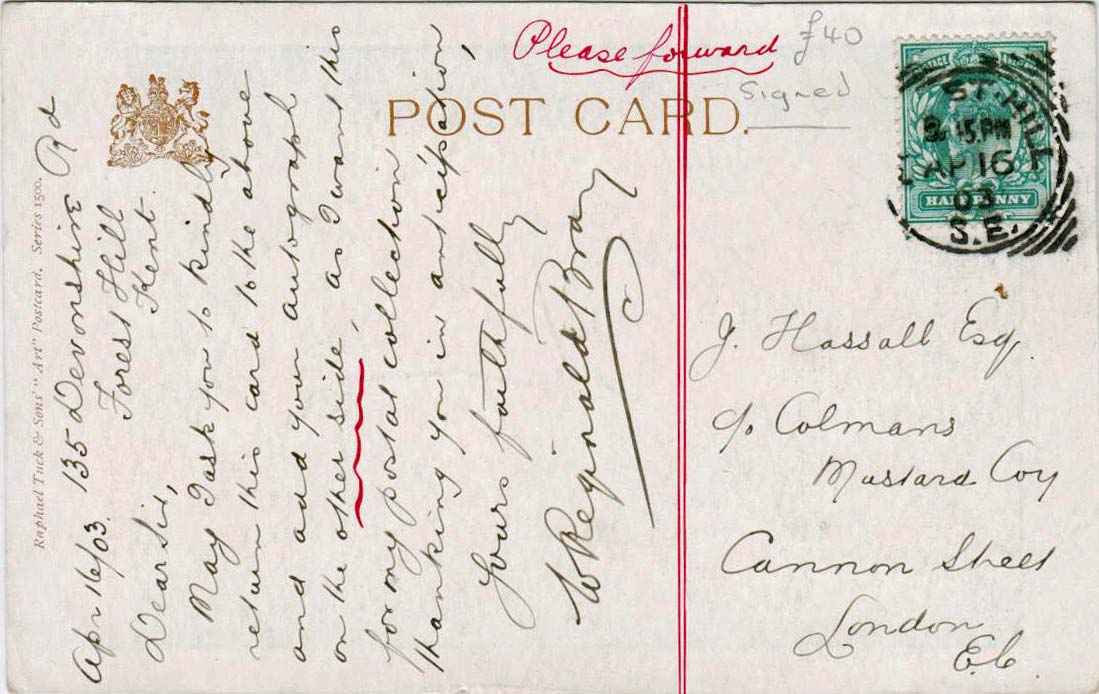 Please forward
£40
signed
POST CARD.
Raphael Tuck & Sons' "Art" Postcard. Series 1500.
Apr 16/03. 135 Devonshire Rd
Forest Hill
Kent
Dear Sir,
May I ask you to kindly
return this card to the above
and add your autograph
on the other side, as I want this
for my postal collection
thanking you in anticipation,
Yours faithfully
W Reginald Bray
POSTAGE
HALFPENNY
ST. HILL
8. 15. PM
AP 16
03
S.E.
J. Hassall Esq.
c/o Colmans
Mustard Coy
Cannon Street
London
E.C